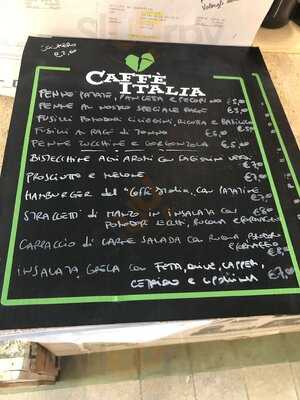 CAFFÈ
ITALIA
PENNE PATATE, PANCETA E PECORINO €5,00
PENNE AL NOSTRO SPECIALE RAGÙ €5,00
FUSILLI POMODORI CILIEGINI, RICOTA E BASILICO
FUSILI AL RAGÙ DI TONNO €5,00
PENNE ZUCCHINE E GORGONZOLA
BISTECCHINE AGLI AROMI CON
PROSCIUTTO E MELONE €7,00
HAMBURGER del "Caffè Italia, con PATATINE
STRACCETTI di MANZO IN INSALATA con
POMODORI SECCHI, RUCOLA E
CARPACCIO di CARNE SALADA con RUCOLA
INSALATA GRECA con FETA, OLIVE, CAPPERI,
CETRIOLO E CIPOLLINA €7,00